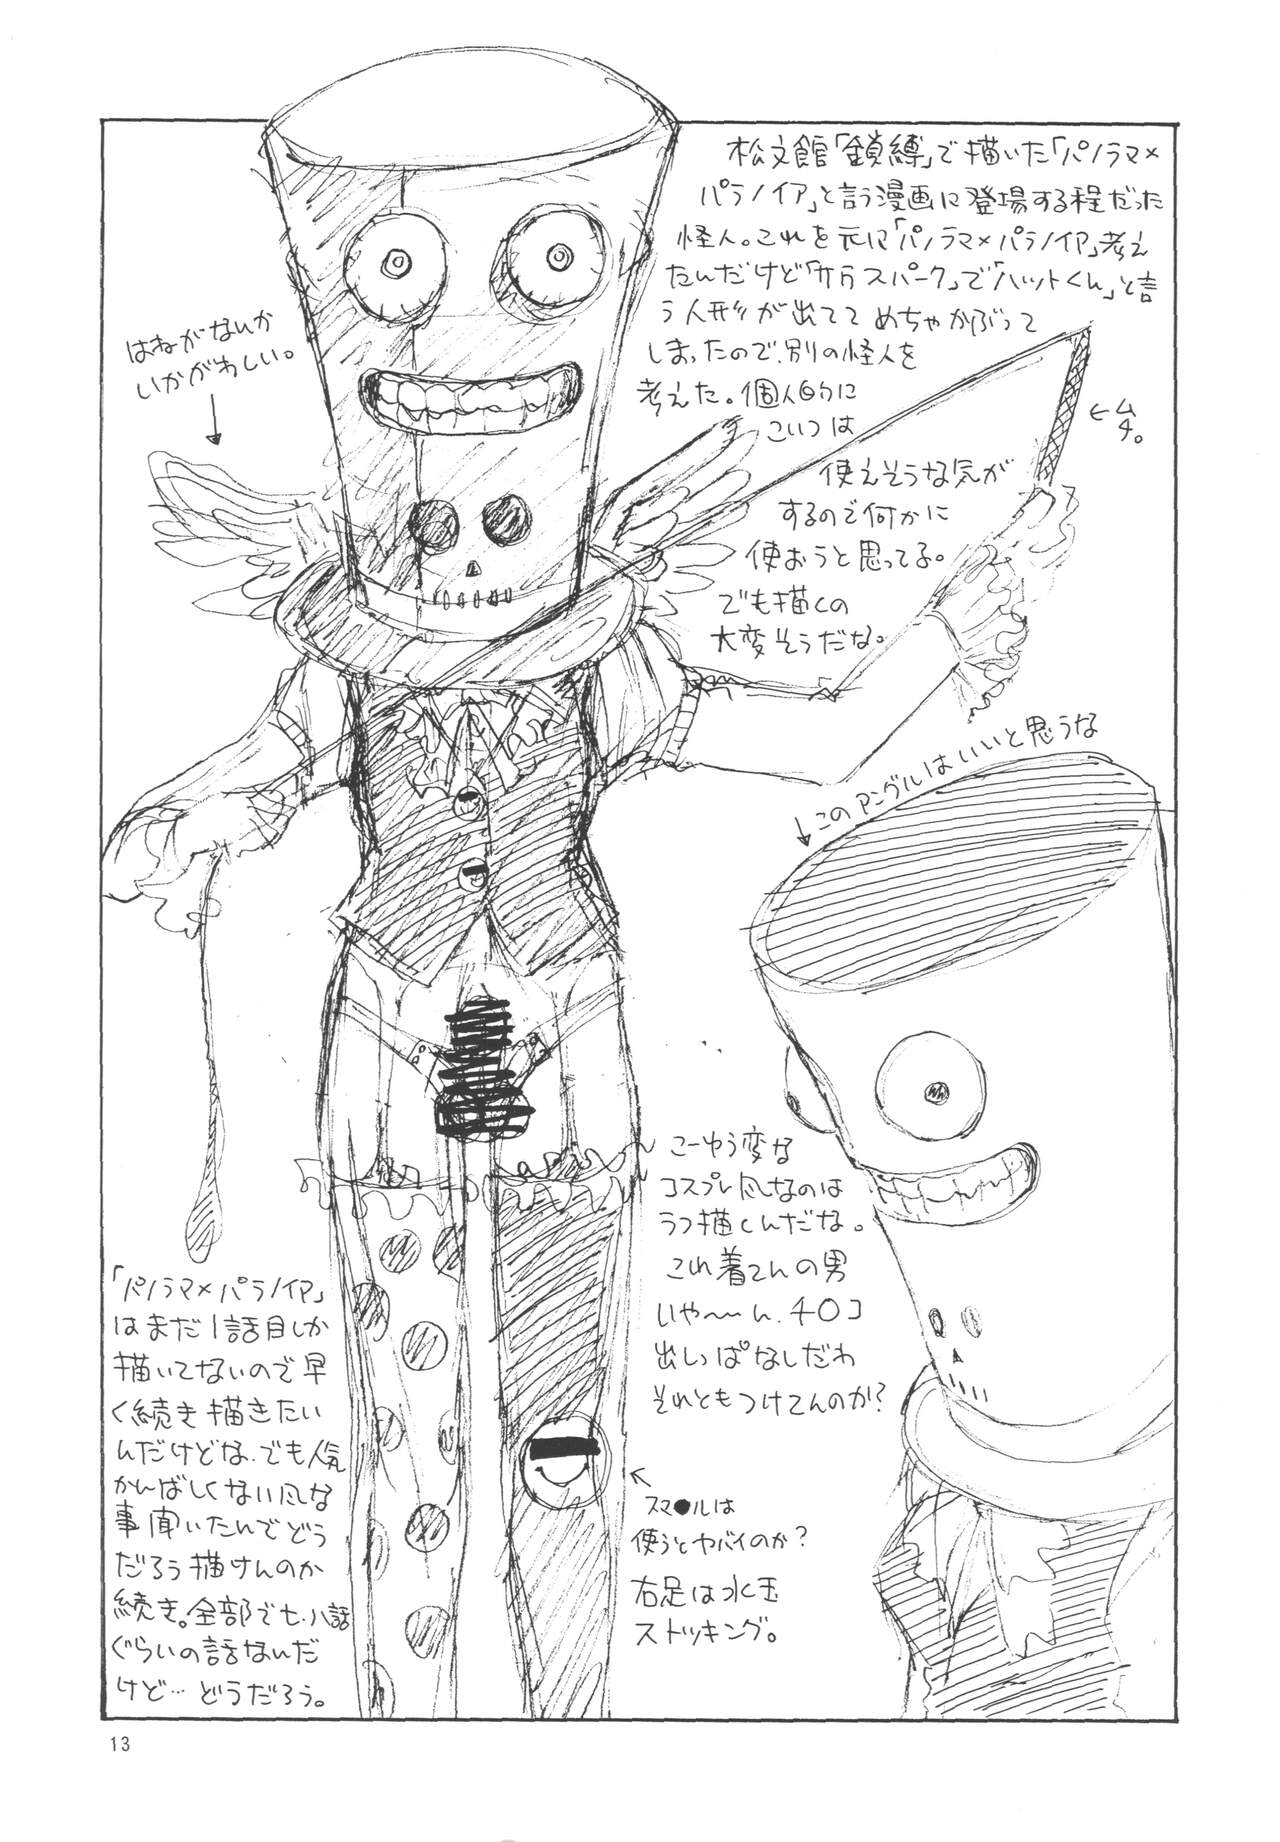 松文館「鎖縛」で描いた「パノラマ×
パラノイア」と言う漫画に登場する程だった
怪人。これを元に「パノラマ×パラノイア」考え
たんだけど「サガスパーク」で「ハットくん」と言
う人形が出てて めちゃかぶって
しまったので、別の怪人を
考えた。個人的に
こいつは
使えそうな気が
するので何かに
使おうと思ってる。
でも描くの
大変そうだな。
はねがないか
いかがわしい。
←ムチ。
このアングルはいいと思うな
こーゆう変な
コスプレ風なのは
うつ描くんだな。
これ着てんの男
いや〜〜ん、チ○コ
出しっぱなしだわ
それともつけてんのか?
スマ●ルは
使うとヤバイのか?
右足は水玉
ストッキング。
「パノラマ×パラノイア」
はまだ1話目しか
描いてないので早
く続き描きたい
んだけどな、でも人気
かんばしくない風な
事聞いたんでどう
だろう描けんのか
続き。全部で七、八話
ぐらいの話なんだ
けど…どうだろう。
13